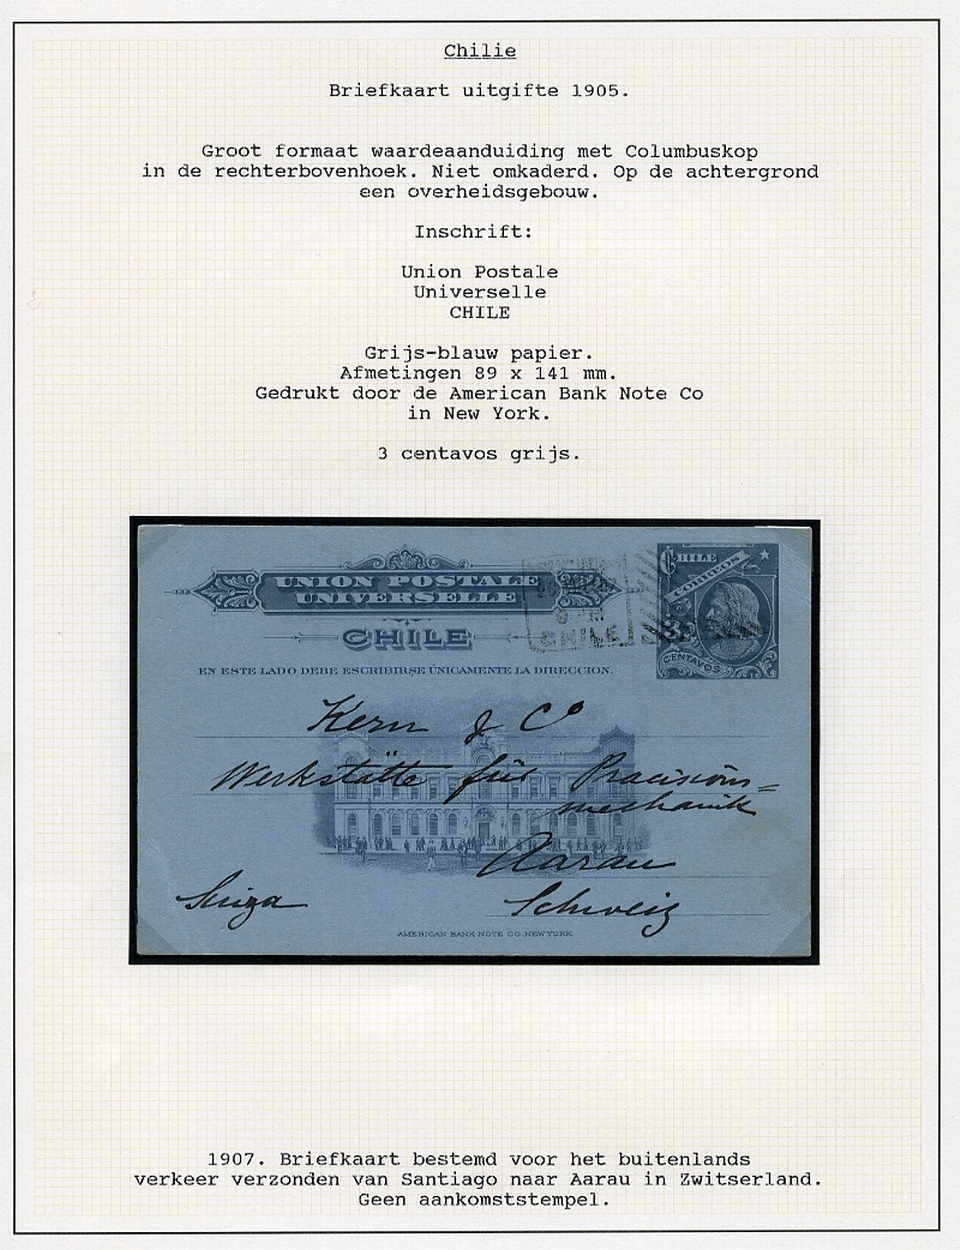 Chilie
Briefkaart uitgifte 1905.
Groot formaat waardeaanduiding met Columbuskop
in de rechterbovenhoek. Niet omkaderd. Op de achtergrond
een overheidsgebouw.
Inschrift:
Union Postale
Universelle
CHILE
Grijs-blauw papier.
Afmetingen 89 x 141 mm.
Gedrukt door de American Bank Note Co
in New York.
3 centavos grijs.
CHILE
CORREOS
UNION POSTALE
UNIVERSELLE
CHILE
CHILE
3
CENTAVOS
EN ESTE LADO DEBE ESCRIBIRSE ÚNICAMENTE LA DIRECCION.
Kern & Co
Werkstätte für Praecisions=
mechanik
Aarau
Suiza
Schweiz
AMERICAN BANK NOTE CO. NEW YORK
1907. Briefkaart bestemd voor het buitenlands
verkeer verzonden van Santiago naar Aarau in Zwitserland.
Geen aankomststempel.